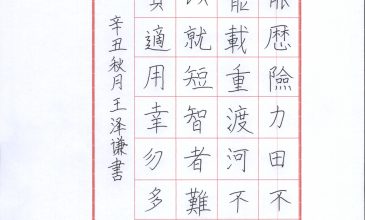 歷險力田不
能載重渡河不
就短智者難
適用幸勿多
辛丑秋月王泽谦書